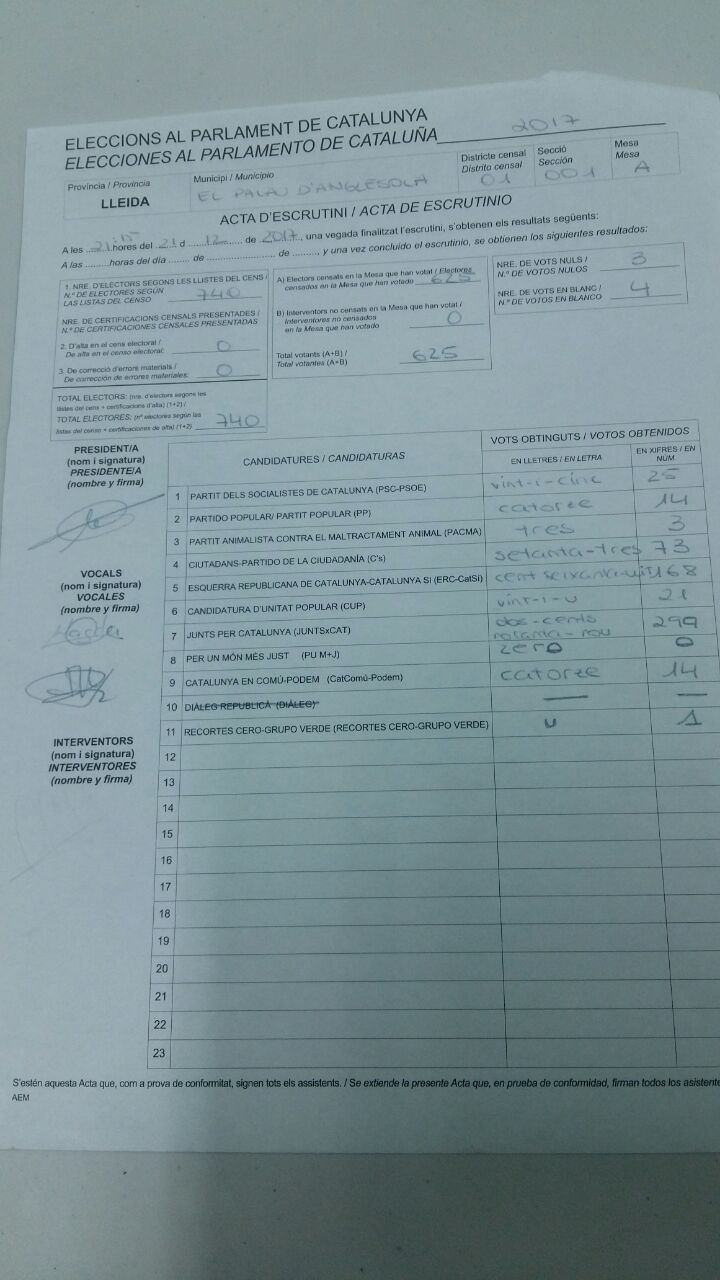 ELECCIONS AL PARLAMENT DE CATALUNYA
ELECCIONES AL PARLAMENTO DE CATALUÑA 2017
Província / Provincia
LLEIDA
Municipi / Municipio
EL PALAU D'ANGLESOLA
Districte censal
Distrito censal
01
Secció
Sección
001
Mesa
Mesa
A
ACTA D'ESCRUTINI / ACTA DE ESCRUTINIO
A les 21:15 hores del 21 d 12 de 2017, una vegada finalitzat l'escrutini, s'obtenen els resultats següents:
A las ......... horas del día ....... de ................ de ........., y una vez concluido el escrutinio, se obtienen los siguientes resultados:
1. NRE. D'ELECTORS SEGONS LES LLISTES DEL CENS /
N.º DE ELECTORES SEGÚN
LAS LISTAS DEL CENSO 740
NRE. DE CERTIFICACIONS CENSALS PRESENTADES /
N.º DE CERTIFICACIONES CENSALES PRESENTADAS
2. D'alta en el cens electoral /
De alta en el censo electoral: 0
3. De correcció d'errors materials /
De corrección de errores materiales: 0
TOTAL ELECTORS: (nre. d'electors segons les
llistes del cens + certificacions d'alta) (1+2) /
TOTAL ELECTORES: (nº electores según las
listas del censo + certificaciones de alta) (1+2) 740
A) Electors censats en la Mesa que han votat / Electores
censados en la Mesa que han votado 625
B) Interventors no censats en la Mesa que han votat /
Interventores no censados
en la Mesa que han votado 0
Total votants (A+B) /
Total votantes (A+B) 625
NRE. DE VOTS NULS /
N.º DE VOTOS NULOS 3
NRE. DE VOTS EN BLANC /
N.º DE VOTOS EN BLANCO 4
PRESIDENT/A
(nom i signatura)
PRESIDENTE/A
(nombre y firma)
VOCALS
(nom i signatura)
VOCALES
(nombre y firma)
INTERVENTORS
(nom i signatura)
INTERVENTORES
(nombre y firma)
CANDIDATURES / CANDIDATURAS
VOTS OBTINGUTS / VOTOS OBTENIDOS
EN LLETRES / EN LETRA
EN XIFRES / EN NÚM.
1 PARTIT DELS SOCIALISTES DE CATALUNYA (PSC-PSOE) vint-i-cinc 25
2 PARTIDO POPULAR/ PARTIT POPULAR (PP) catorze 14
3 PARTIT ANIMALISTA CONTRA EL MALTRACTAMENT ANIMAL (PACMA) tres 3
4 CIUTADANS-PARTIDO DE LA CIUDADANÍA (C's) setanta-tres 73
5 ESQUERRA REPUBLICANA DE CATALUNYA-CATALUNYA SI (ERC-CatSí) cent seixanta-vuit 168
6 CANDIDATURA D'UNITAT POPULAR (CUP) vint-i-u 21
7 JUNTS PER CATALUNYA (JUNTSxCAT) dos-cents noranta-nou 299
8 PER UN MÓN MÉS JUST (PU M+J) zero 0
9 CATALUNYA EN COMÚ-PODEM (CatComú-Podem) catorze 14
10 DIÀLEG REPUBLICÀ (DIÀLEG) — —
11 RECORTES CERO-GRUPO VERDE (RECORTES CERO-GRUPO VERDE) u 1
12
13
14
15
16
17
18
19
20
21
22
23
S'estén aquesta Acta que, com a prova de conformitat, signen tots els assistents. / Se extiende la presente Acta que, en prueba de conformidad, firman todos los asistente
AEM